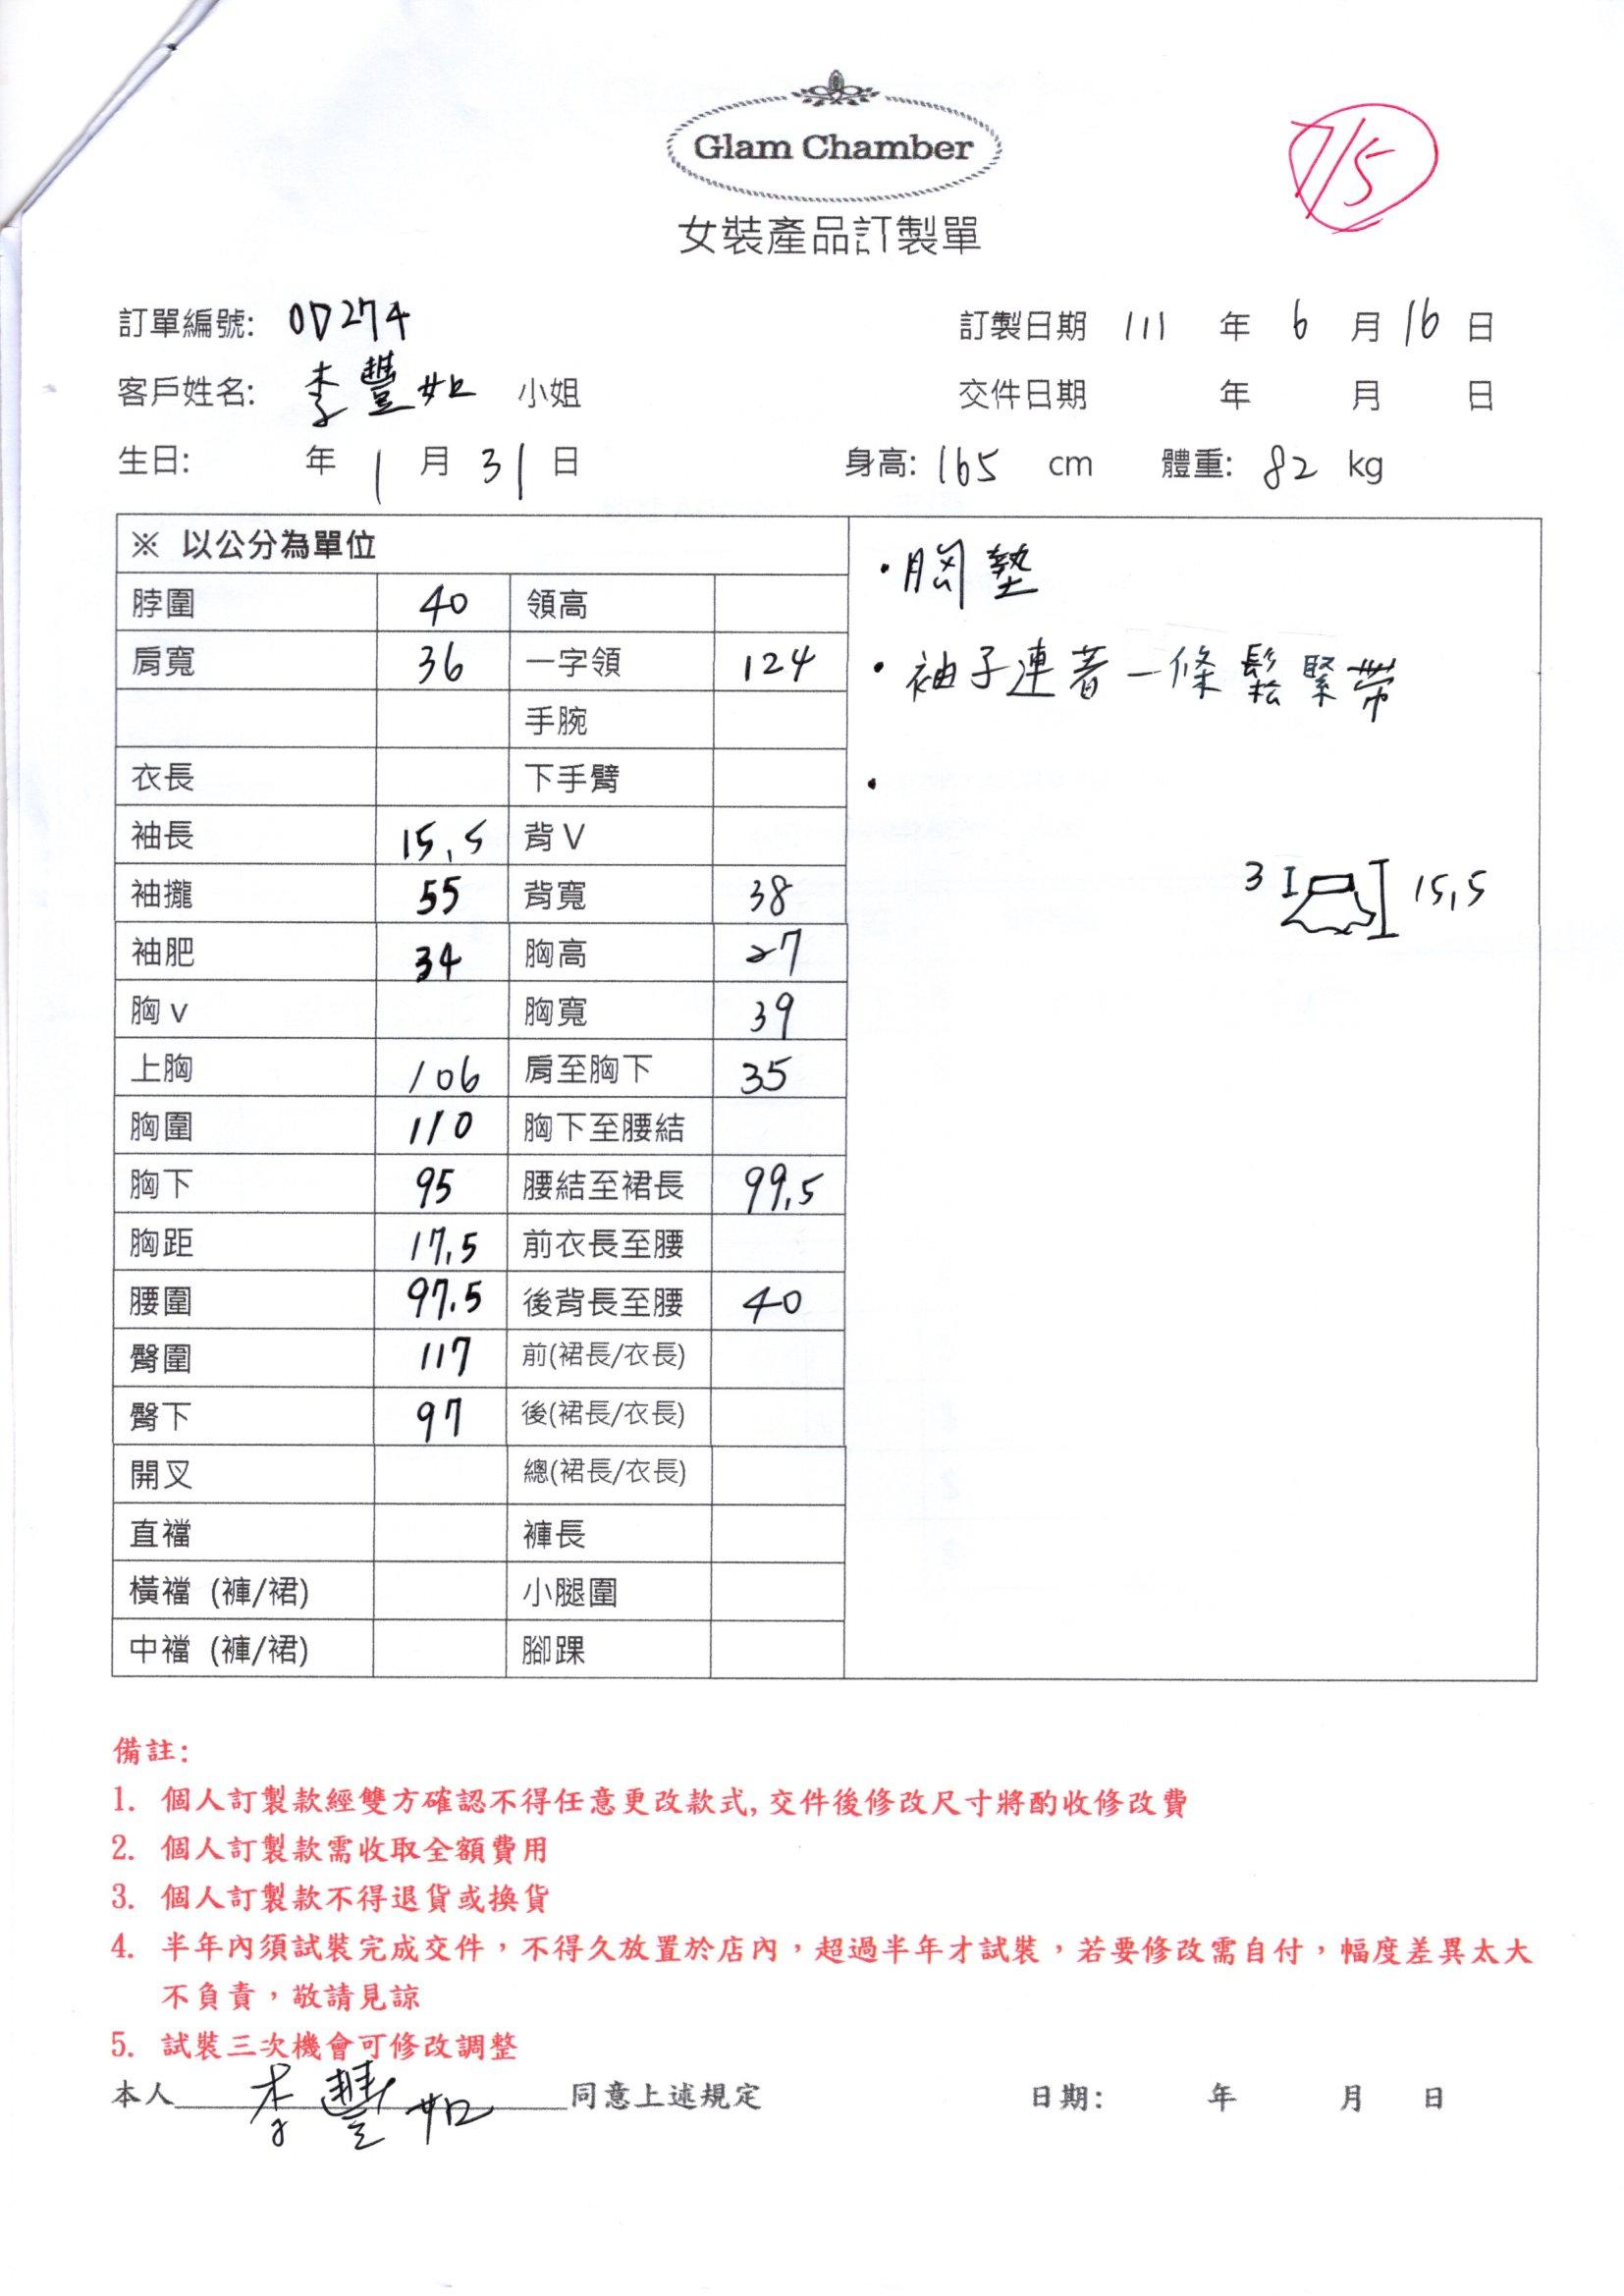 Glam Chamber
7/5
女裝產品訂製單
訂單編號: OD274
訂製日期 111 年 6 月 16 日
客戶姓名: 李豐如 小姐
交件日期 年 月 日
生日: 年 1 月 31 日
身高: 165 cm 體重: 82 kg
※ 以公分為單位
脖圍 40 領高
肩寬 36 一字領 124
手腕
衣長 下手臂
袖長 15.5 背V
袖攏 55 背寬 38
袖肥 34 胸高 27
胸v 胸寬 39
上胸 106 肩至胸下 35
胸圍 110 胸下至腰結
胸下 95 腰結至裙長 99.5
胸距 17.5 前衣長至腰
腰圍 97.5 後背長至腰 40
臀圍 117 前(裙長/衣長)
臀下 97 後(裙長/衣長)
開叉 總(裙長/衣長)
直襠 褲長
橫襠 (褲/裙) 小腿圍
中襠 (褲/裙) 腳踝
・胸墊
・袖子連著一條鬆緊帶
・
3 15.5
備註:
1. 個人訂製款經雙方確認不得任意更改款式,交件後修改尺寸將酌收修改費
2. 個人訂製款需收取全額費用
3. 個人訂製款不得退貨或換貨
4. 半年內須試裝完成交件，不得久放置於店內，超過半年才試裝，若要修改需自付，幅度差異太大
不負責，敬請見諒
5. 試裝三次機會可修改調整
本人 李豐如 同意上述規定 日期: 年 月 日